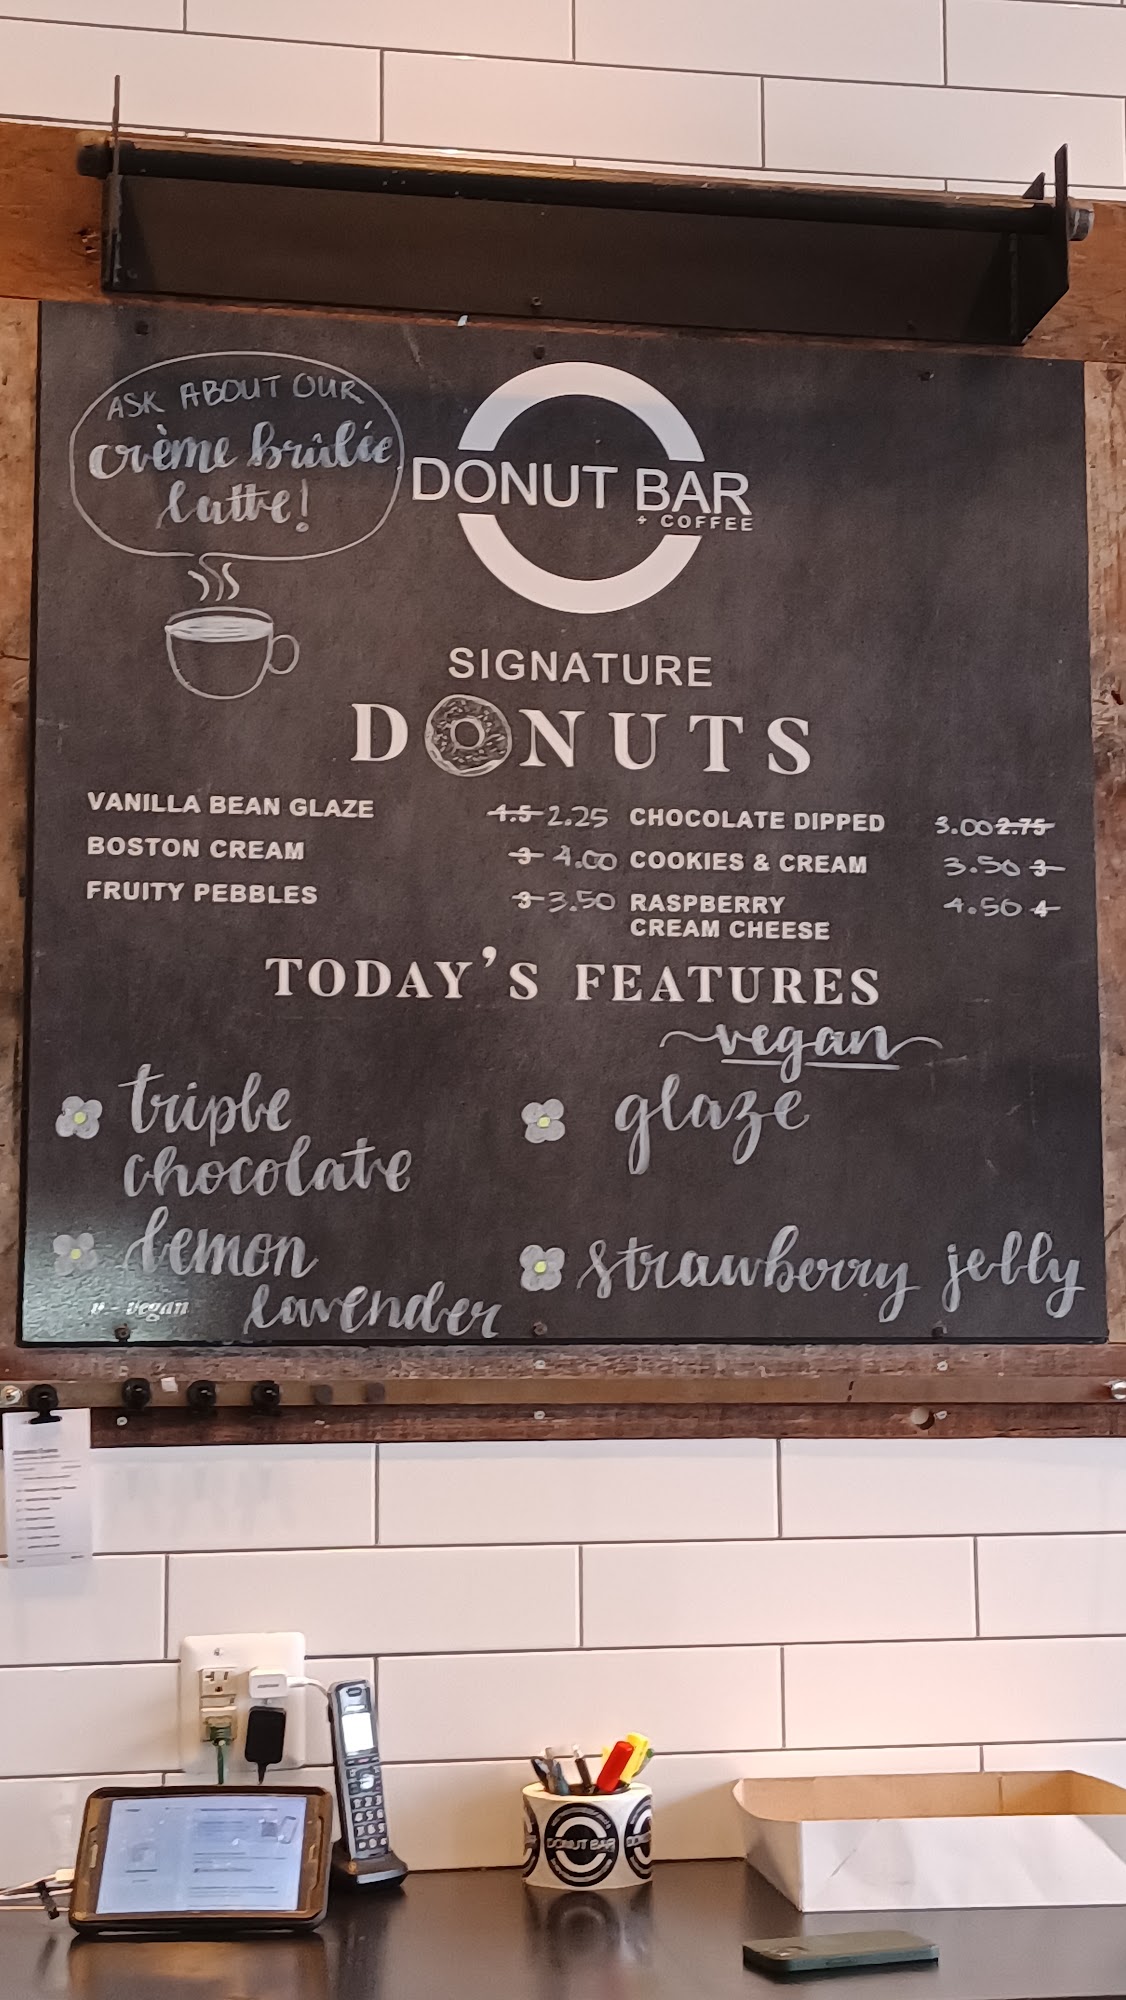 ASK ABOUT OUR
crème brûlée
latte!
DONUT BAR
+ COFFEE
SIGNATURE
DONUTS
VANILLA BEAN GLAZE 1.5 2.25
BOSTON CREAM 3 4.00
FRUITY PEBBLES 3 3.50
CHOCOLATE DIPPED 3.00 2.75
COOKIES & CREAM 3.50 3
RASPBERRY 4.50 4
CREAM CHEESE
TODAY'S FEATURES
triple
chocolate
lemon
lavender
vegan
glaze
strawberry jelly
v - vegan
DONUT BAR